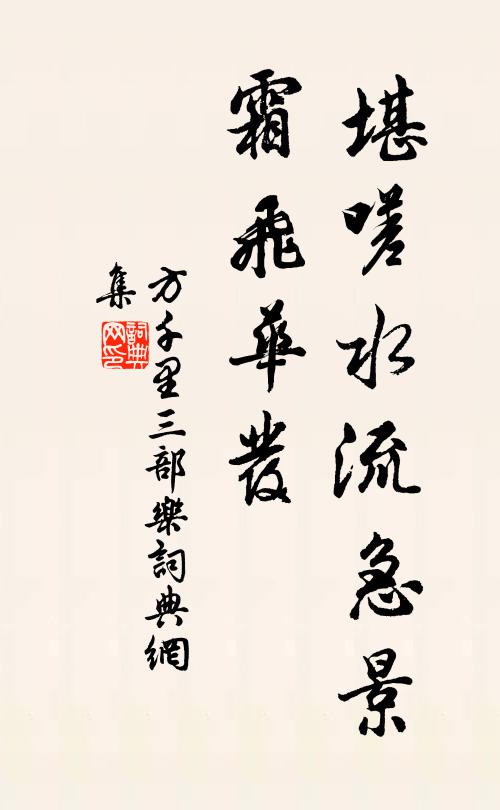 堪嗟水流急景
霜飛華發
方千里三部樂詞典網
集
詞典網印